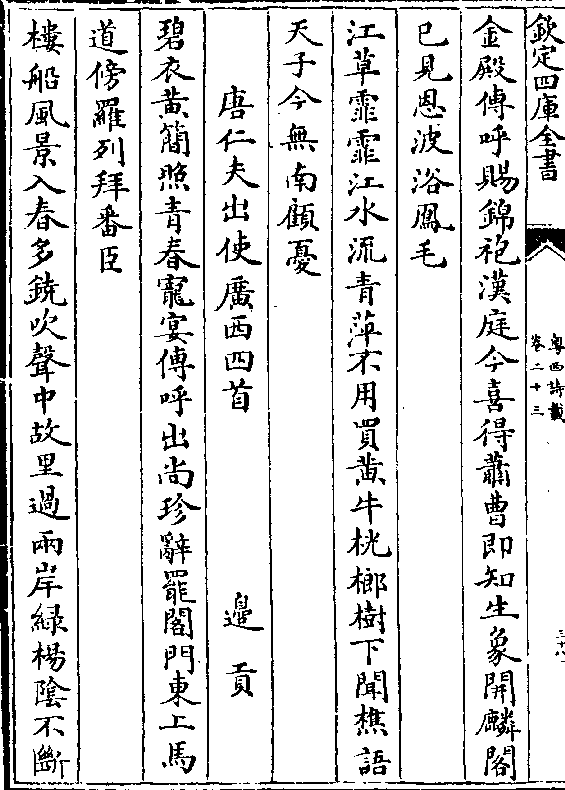 欽定四庫全書
粤西詩載
卷二十三
金殿傳呼賜錦袍漢庭今喜得蕭曹即知生象開麟閣
已見恩波浴鳳毛
江草霏霏江水流青萍不用買黄牛桄榔樹下聞樵語
天子今無南顧憂
唐仁夫出使廣西四首 邉貢
碧衣黄簡照青春寵宴傳呼出尚珍辭罷閣門東上馬
道傍羅列拜番臣
樓船風景入春多鐃吹聲中故里過兩岸緑楊陰不斷